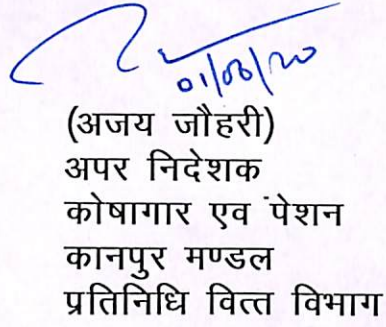 01/06/20
(अजय जौहरी)
अपर निदेशक
कोषागार एव पेशन
कानपुर मण्डल
प्रतिनिधि वित्त विभाग